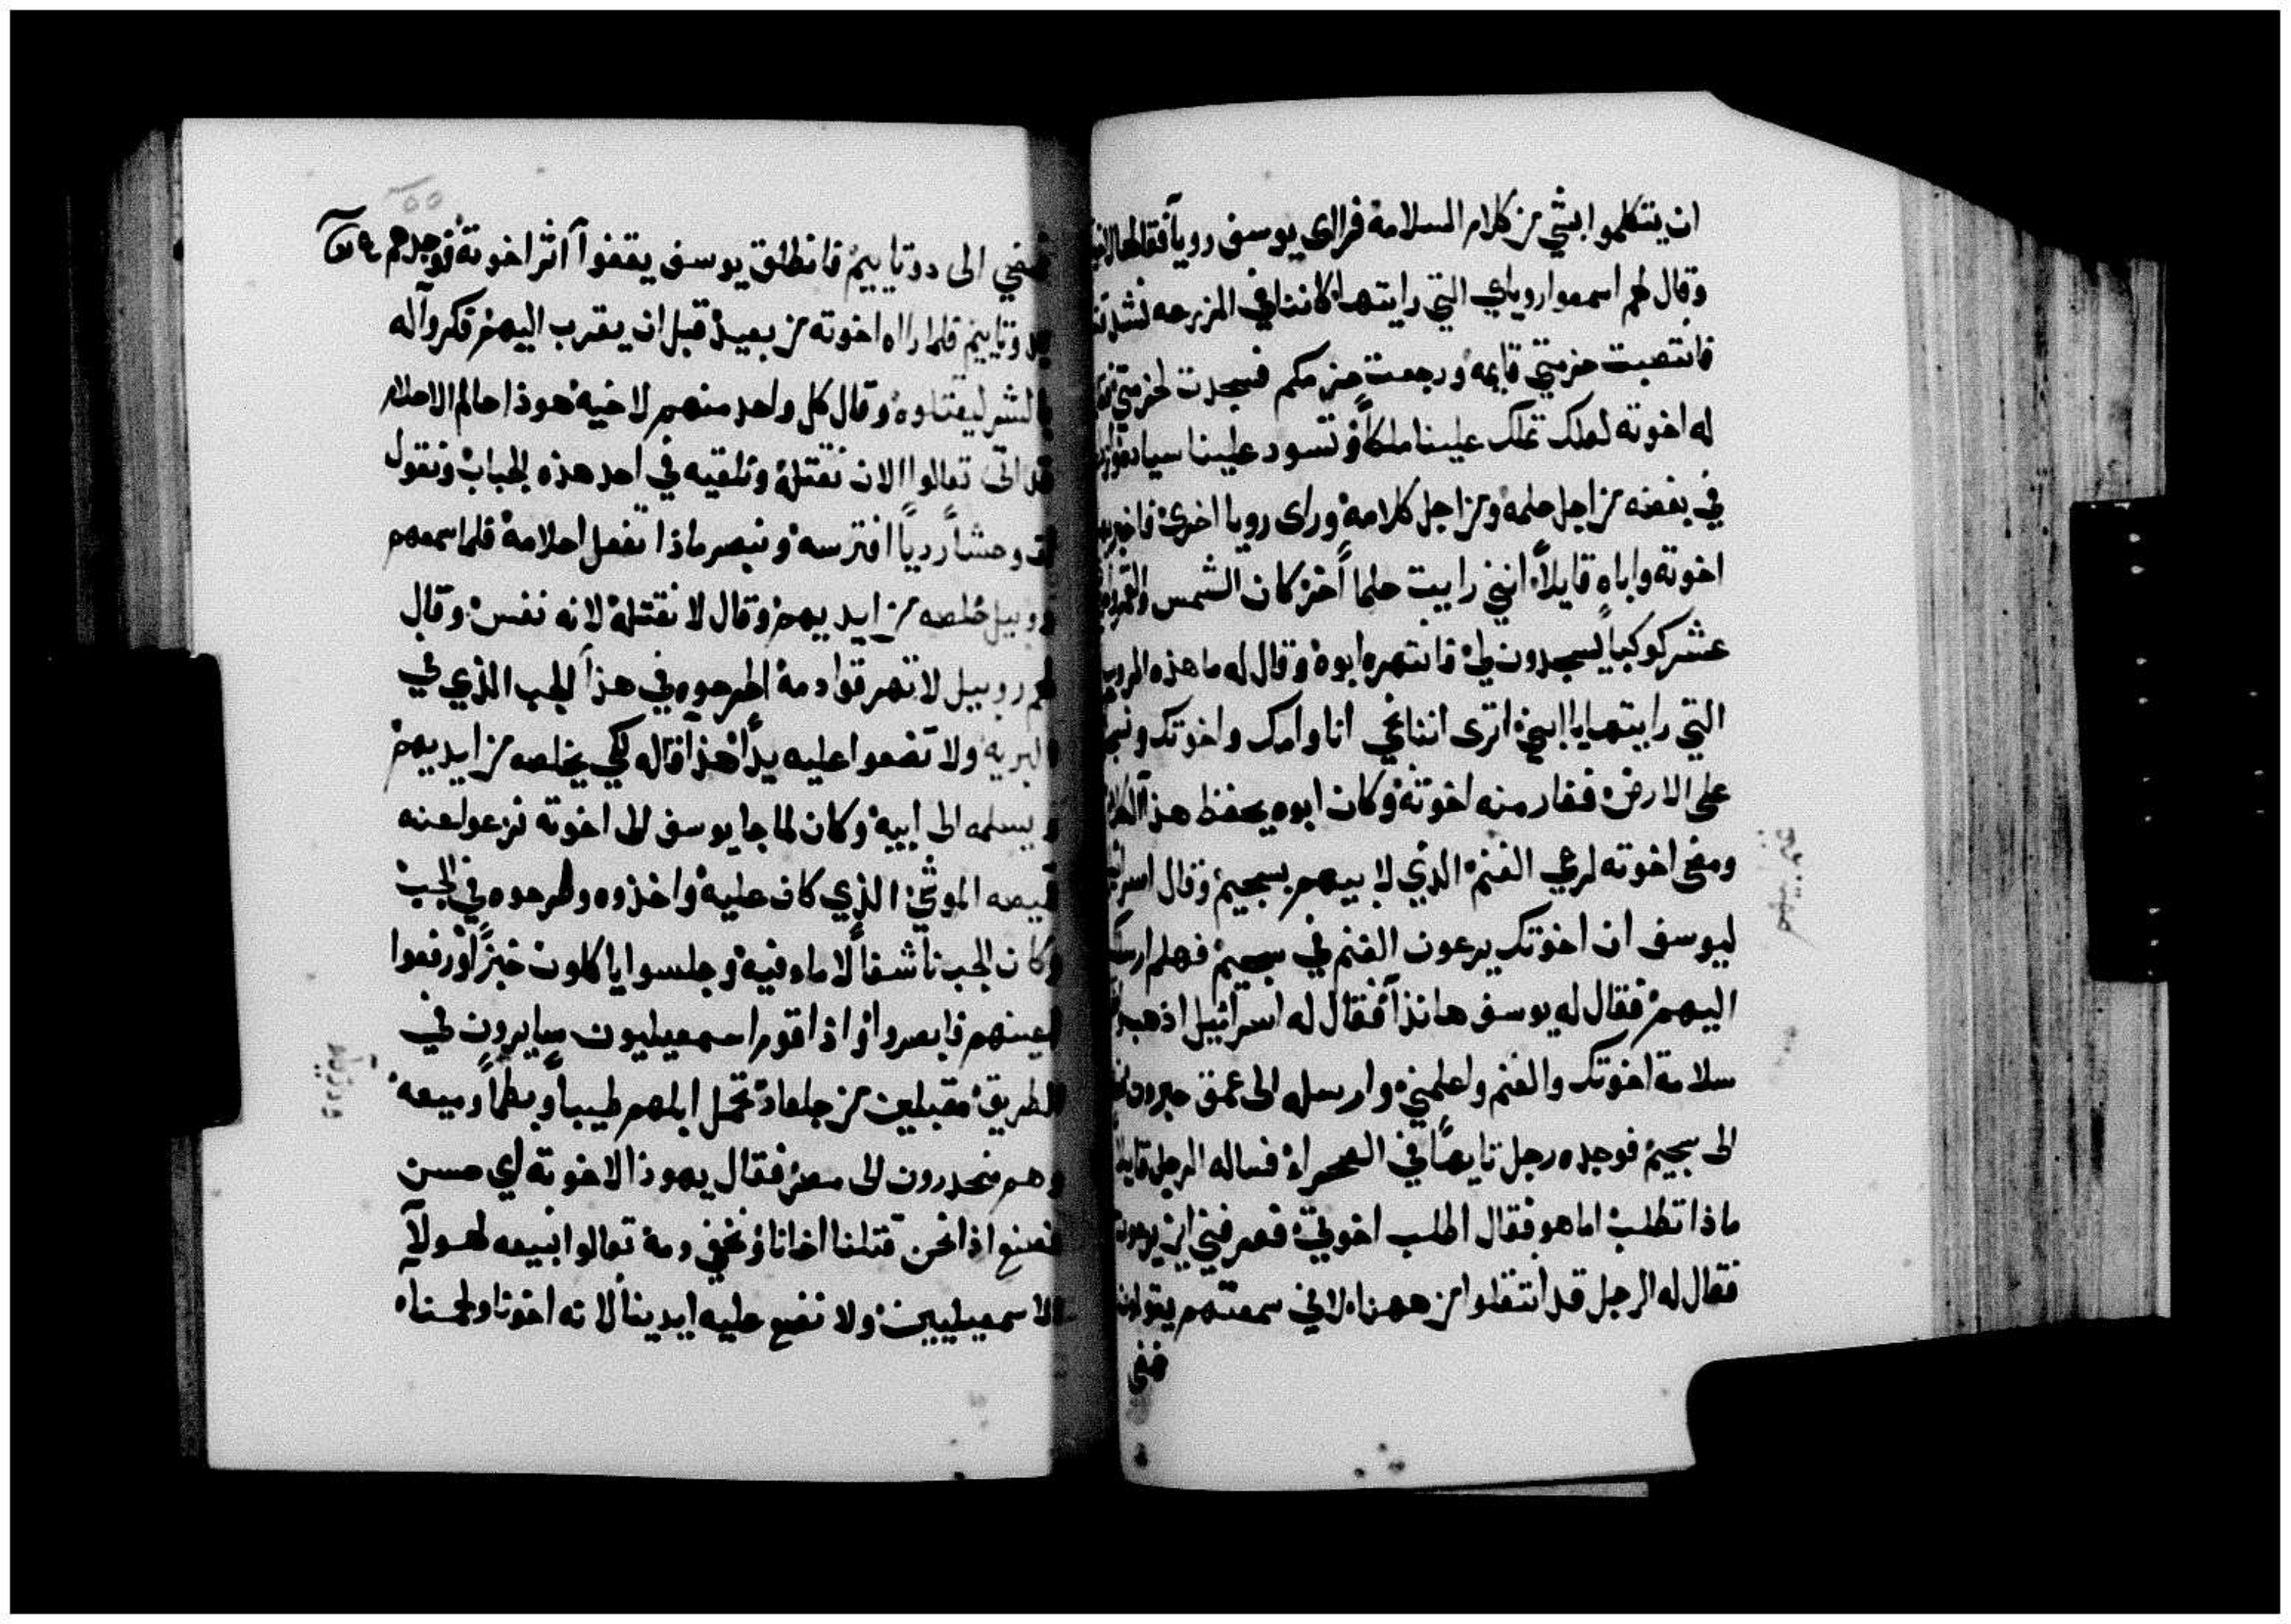 ان يتكلموا بشي من كلام السلامة فراي يوسف رويا فقالها لاخو
وقال لهم اسمعوا روياي التي رايتها كاننا في المزرعه نشد
فانتصبت حزمتي قايمه ورجعت حزمكم فسجدت لحزمتي فقا
له اخوته لعلك تملك علينا ملكاً وتسود علينا سياده
في بغضه من اجل حلمه ومن اجل كلامه وراى رويا اخرى فاخبر بها
اخوته واباه قايلاً انني رايت حلماً اخر كان الشمس والقمر
عشر كوكباً يسجدون لي فانتهره ابوه وقال له ما هذه الرويا
التي رايتها يا ابني اترى اننا نجي انا وامك واخوتك ونسجد
على الارض فغار منه اخوته وكان ابوه يحفظ هذا الكلام
ومضى اخوته لرعي الغنم الذي لابيهم بسجيم وقال اسرائيل
ليوسف ان اخوتك يرعون الغنم في سجيم فهلم ارسلك
اليهم فقال له يوسف هانذا فقال له اسرائيل اذهب
سلامة اخوتك والغنم واعلمني وارسله الى عمق حبرون
الى سجيم فوجده رجل تايهاً في الصحراء فساله الرجل قايلا
ماذا تطلب اما هو فقال اطلب اخوتي فعرفني اين يرعون
فقال له الرجل قد انتقلوا من ههنا لاني سمعتهم يقولون
نمضي
نمضي الى دوتاييم فانطلق يوسف يقفوا اثر اخوته فوجدهم
بدوتاييم فلما راه اخوته من بعيد قبل ان يقرب اليهم فكروا له
بالشر ليقتلوه وقال كل واحد منهم لاخيه هوذا حالم الاحلام
قد اتى تعالوا الان نقتله ونلقيه في احد هذه الجباب ونقول
ان وحشاً ردياً افترسه ونبصر ماذا تفعل احلامه فلما سمعهم
روبيل خلصه من ايديهم وقال لا نقتله لانه نفس وقال
لهم روبيل لا تهرقوا دمه اطرحوه في هذا الجب الذي في
البريه ولا تضعوا عليه يداً هذا قاله لكي يخلصه من ايديهم
ويسلمه الى ابيه وكان لما جا يوسف الى اخوته نزعوا عنه
قميصه الموشي الذي كان عليه واخذوه وطرحوه في الجب
وكان الجب ناشفاً لا ماء فيه وجلسوا ياكلون خبزاً ورفعوا
اعينهم فابصروا واذا قوم اسمعيليون سايرون في
الطريق مقبلين من جلعاد تحمل ابلهم طيباً وبطماً وميعه
وهم منحدرون الى مصر فقال يهوذا لاخوته اي حسن
نصنع اذا نحن قتلنا اخانا ونخفي دمه تعالوا نبيعه لهولاء
الاسمعيليين ولا نضع عليه ايدينا لانه اخونا ولحمنا